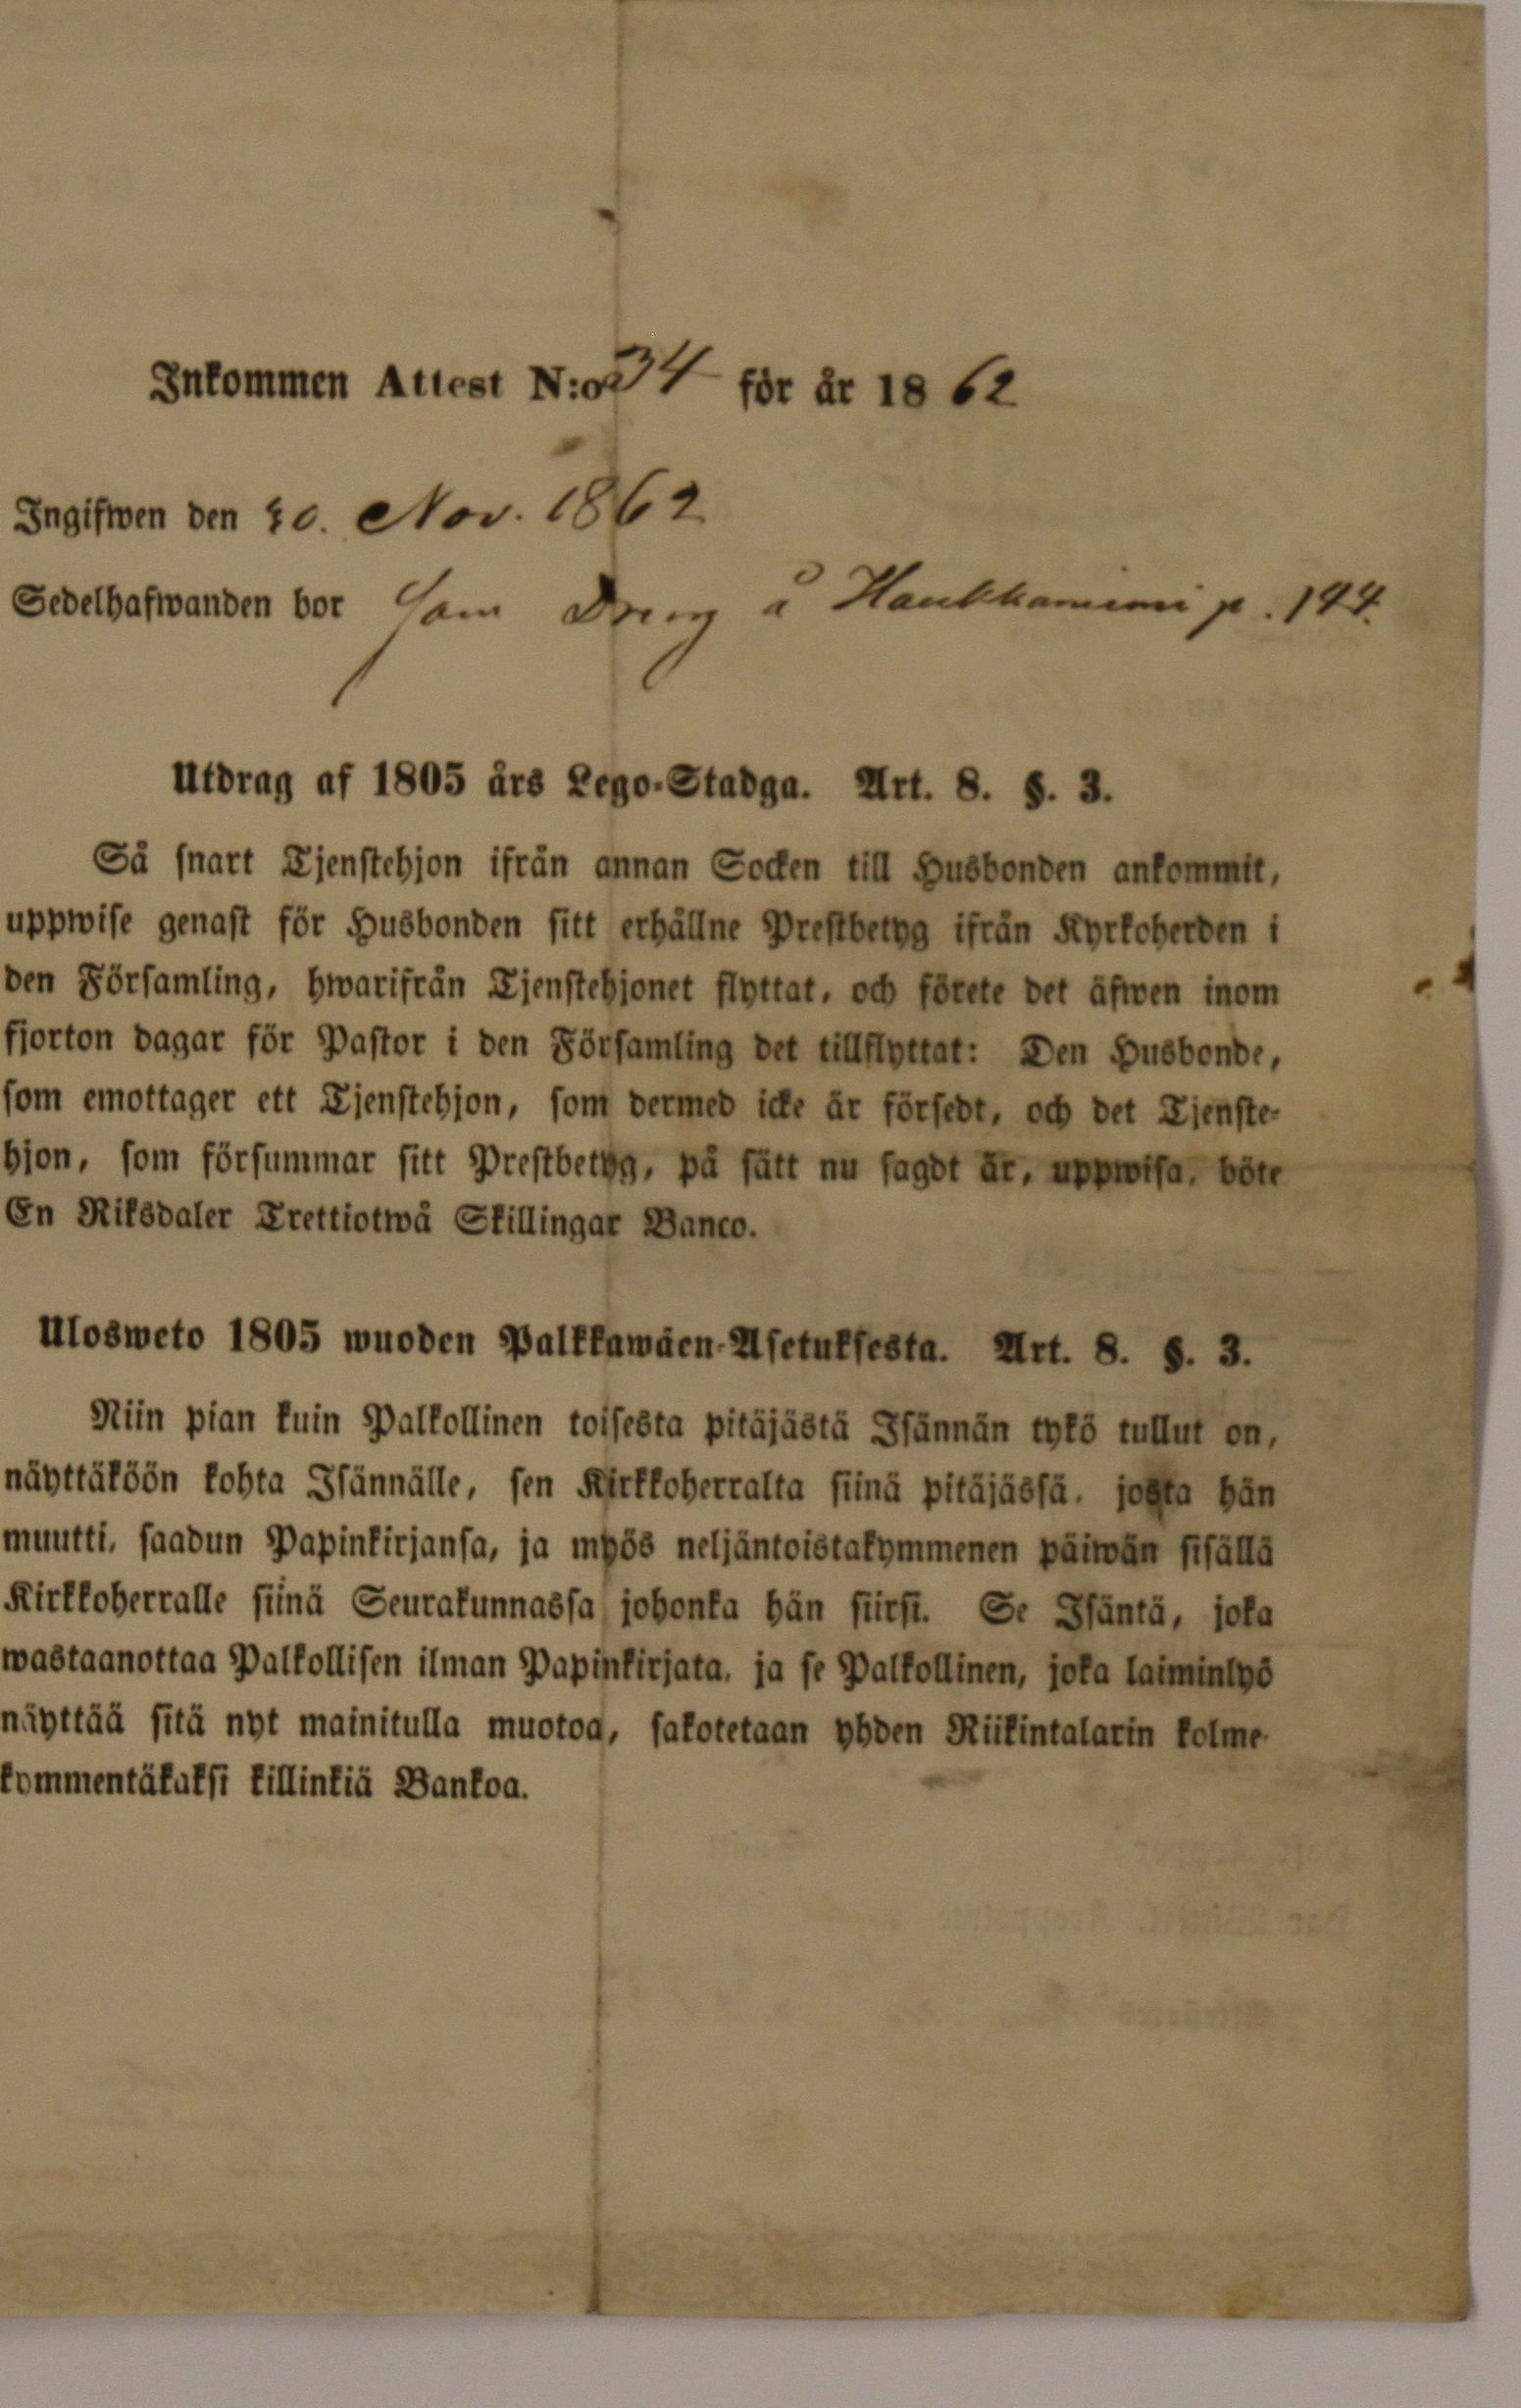 Inkommen Attest N:o 34 för år 1862
Ingifwen den 30. Nov. 1862
Sedelhafwanden bor som Dreng å Haukkaniemi p. 144.
Utdrag af 1805 års Lego-Stadga. Art. 8. §. 3.
Så snart Tjenstehjon ifrån annan Socken till Husbonden ankommit,
uppwise genast för Husbonden sitt erhållne Prestbetyg ifrån Kyrkoherden i
den Församling, hwarifrån Tjenstehjonet flyttat, och förete det äfwen inom
fjorton dagar för Pastor i den Församling det tillflyttat: Den Husbonde,
som emottager ett Tjenstehjon, som dermed icke är försedt, och det Tjenste-
hjon, som försummar sitt Prestbetyg, på sätt nu sagdt är, uppwisa, böte
En Riksdaler Trettiotwå Skillingar Banco.
Ulosweto 1805 wuoden Palkkawäen-Asetuksesta. Art. 8. §. 3.
Niin pian kuin Palkollinen toisesta pitäjästä Isännän tykö tullut on,
näyttäköön kohta Isännälle, sen Kirkkoherralta siinä pitäjässä, josta hän
muutti, saadun Papinkirjansa, ja myös neljäntoistakymmenen päiwän sisällä
Kirkkoherralle siinä Seurakunnassa johonka hän siirsi. Se Isäntä, joka
wastaanottaa Palkollisen ilman Papinkirjata, ja se Palkollinen, joka laiminlyö
näyttää sitä nyt mainitulla muotoa, sakotetaan yhden Riikintalarin kolme-
kymmentäkaksi killinkiä Bankoa.